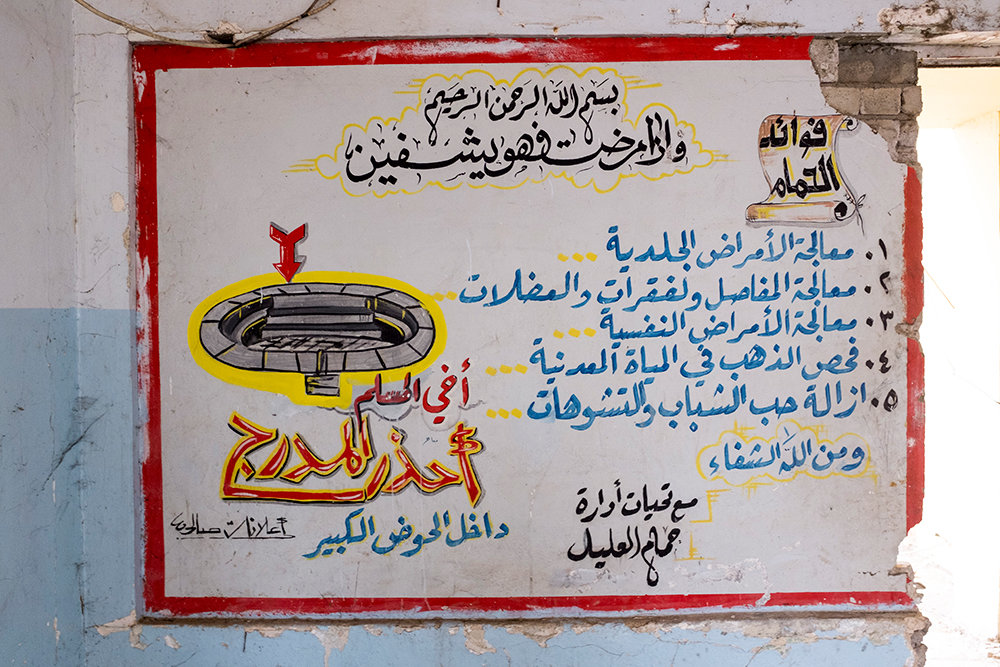 بسم الله الرحمن الرحيم
واذا مرضت فهو يشفين
فوائد
الحمام
١. معالجة الأمراض الجلدية ...
٢. معالجة المفاصل ولفقرات والعضلات ...
٣. معالجة الأمراض النفسية ...
٤. فحص الذهب في المياة المعدنية ...
٥. ازالة حب الشباب والتشوهات ...
ومن الله الشفاء
مع تحيات أدارة
حمام العليل
أخي المسلم
أحذر المدرج
داخل الحوض الكبير
أعلانات صالح